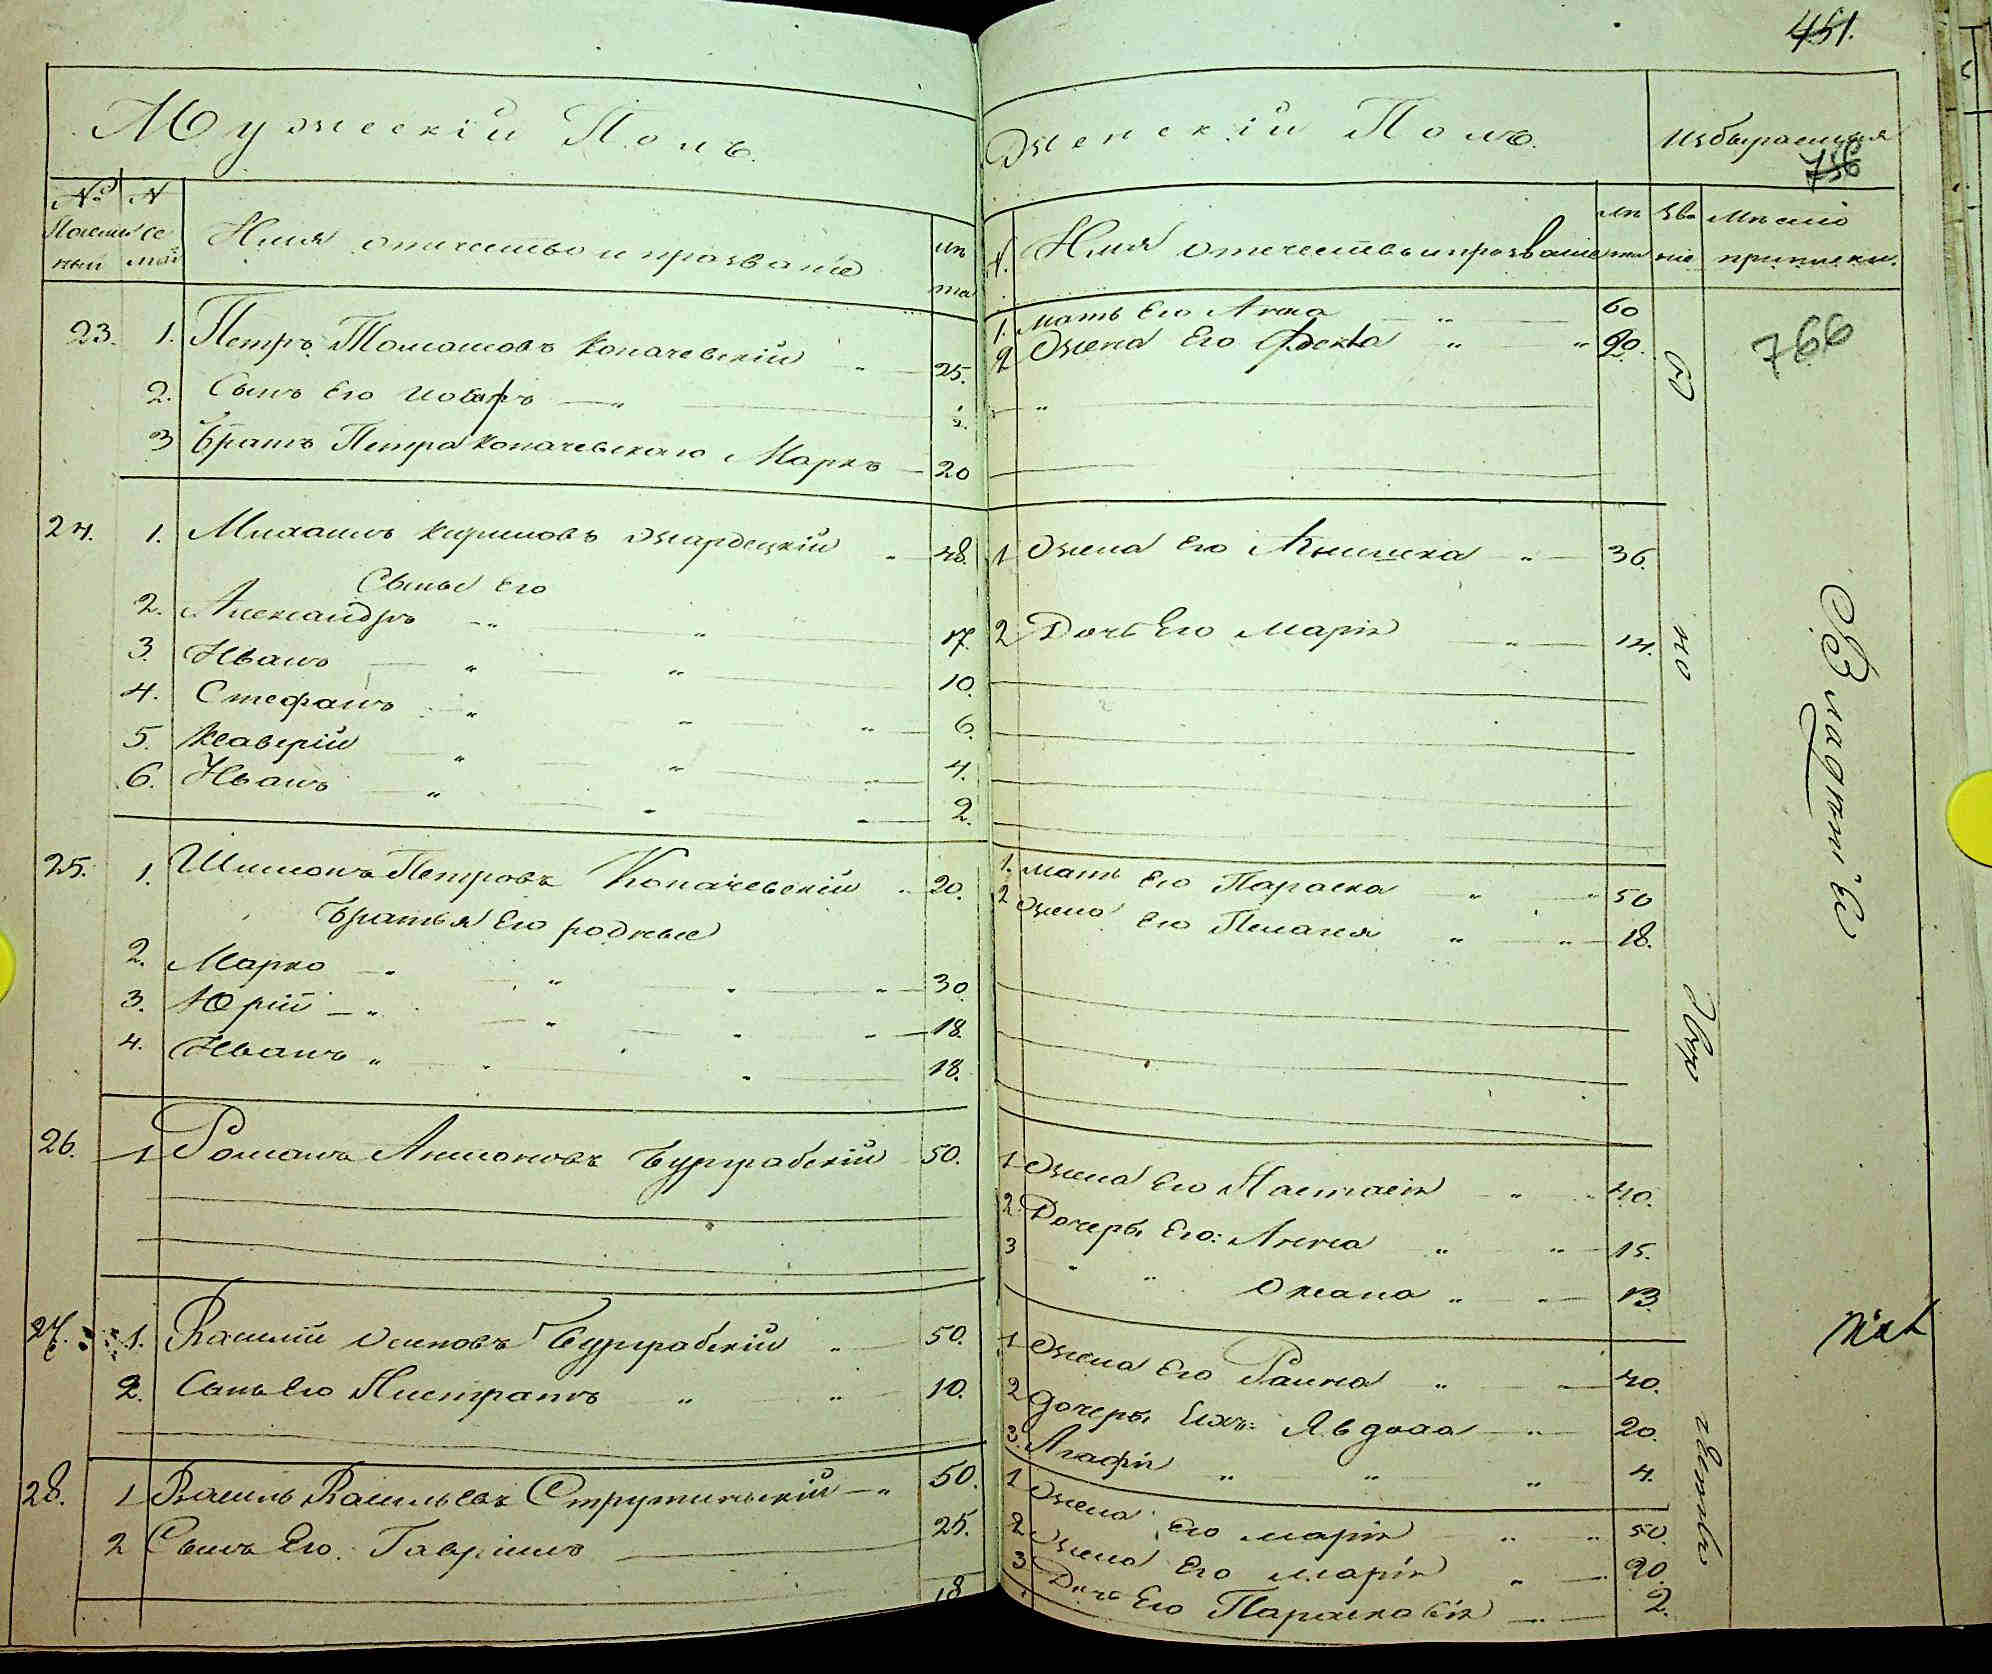 451.
Мужескій Полъ.
№ Посемейный
№ семьи
Имя отчество и прозваніе
лѣта
23. 1. Петръ Томашовъ Копачевскій 25.
2. Сынъ Его
3 Братъ Петра Копачевскаго Марко 20
24. 1. Михаилъ Кириловъ Жардецкій 48.
Сыны Его
2. Александръ 17.
3. Иванъ 10.
4. Стефанъ 6.
5. Ксаверій 4.
6. Иванъ 2.
25. 1. Шимонъ Петровъ Копачевскій 20.
Братья Его родные
2. Марко 30.
3. Юрій 18.
4. Иванъ 18.
26. 1 Романъ Антоновъ Бурграбскій 50.
27. 1. Василій Осиповъ Бурграбскій 50.
2. Сынъ Его 10.
28. 1 Василь Васильевъ Струтинскій 50.
2 Сынъ Его Гавріилъ 25.
18
Женскій Полъ.
756
№. Имя отечество и прозваніе лѣта
званіе
Мѣсто приписки.
1. Мать Его Анна 60
2 Жена Его Фекла 20.
766
1 Жена Его 36.
2 Дочь Его Марія 14.
1. Мать Его Параска 50
2 Жена Его Пелагея 18.
1 Жена Его Настасія 40.
2. Дочери Его: Анна 15.
3 " " Оксана 13.
1 Жена Его Раина 40.
2 Дочери Ихъ: Явдоха 20.
3. Агафія 4.
1 Жена Его Марія 50.
2 Жена Его Марія 20.
3 Дочь Его Параскевія 2.